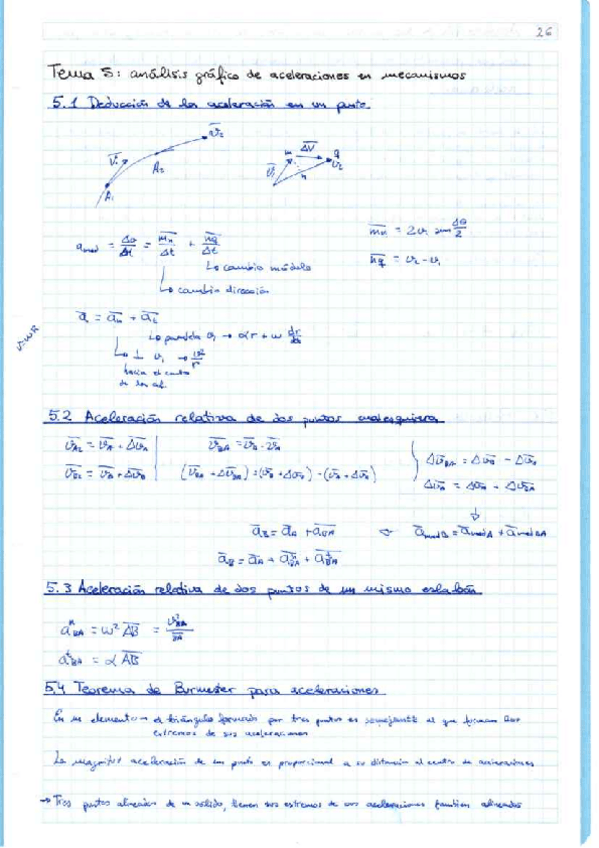 26
Tema 5: análisis gráfico de aceleraciones en mecanismos
5.1 Deducción de la aceleración en un punto.
v₁ A₁ A₂ v₂
m Δv q
v₁ n v₂
a_med = Δv/Δt = mn/Δt + nq/Δt
mn = 2v₁ sen Δθ/2
nq = v₂ - v₁
↳ cambio módulo
↳ cambio dirección
a = aₙ + aₜ
v=wR
↳ paralela → αr + w dr/dt
↳ ⊥ v₁ → v²/r
hacia el centro
5.2 Aceleración relativa de dos puntos cualesquiera
v_A2 = v_A + Δv_A
v_B2 = v_B + Δv_B
(v_BA + Δv_BA) = (v_B + Δv_B) - (v_A + Δv_A)
Δv_BA = Δv_B - Δv_A
Δv_B = Δv_A + Δv_BA
a_B = a_A + a_BA
a_med B = a_med A + a_med BA
a_B = a_A + aⁿ_BA + aᵗ_BA
5.3 Aceleración relativa de dos puntos de un mismo eslabón
aⁿ_BA = w² AB = v²_BA/BA
aᵗ_BA = α AB
5.4 Teorema de Burmester para aceleraciones
En un elemento el triángulo formado por tres puntos es semejante al que forman los
extremos de sus aceleraciones
La magnitud aceleración de un punto es proporcional a su distancia al centro de aceleraciones
→ Tres puntos alineados de un sólido, tienen los extremos de sus aceleraciones también alineados